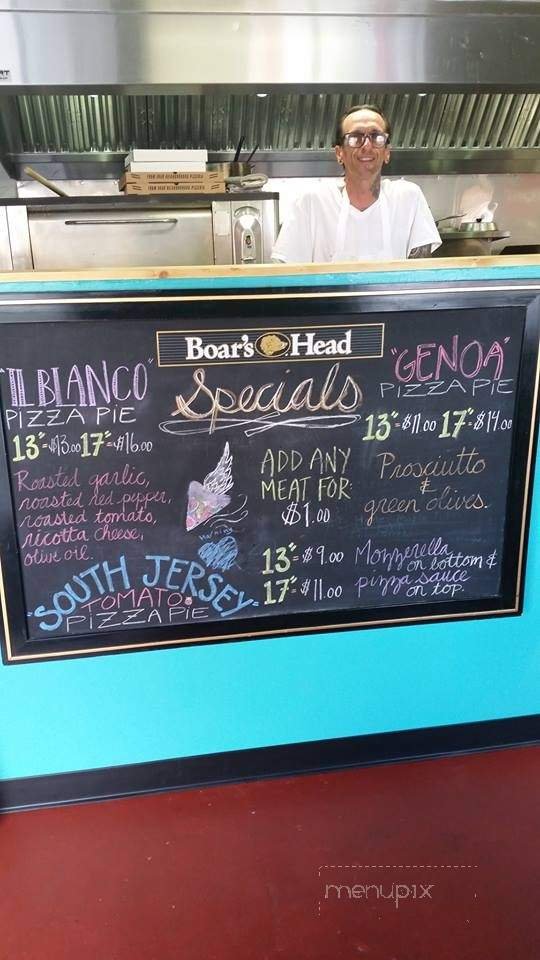 FROM YOUR NEIGHBORHOOD PIZZERIA
FROM YOUR NEIGHBORHOOD PIZZERIA
Boar's Head
Specials
"IL BIANCO"
PIZZA PIE
13"=$13.00 17"=$16.00
Roasted garlic,
roasted red pepper,
roasted tomato,
ricotta cheese,
olive oil.
ADD ANY
MEAT FOR:
$1.00
"GENOA"
PIZZA PIE
13"=$11.00 17"=$14.00
Prosciutto
&
green olives.
"SOUTH JERSEY"
TOMATO
PIZZA PIE
13"=$9.00
17"=$11.00
Mozzerella
on bottom &
pizza sauce
on top.
menupix